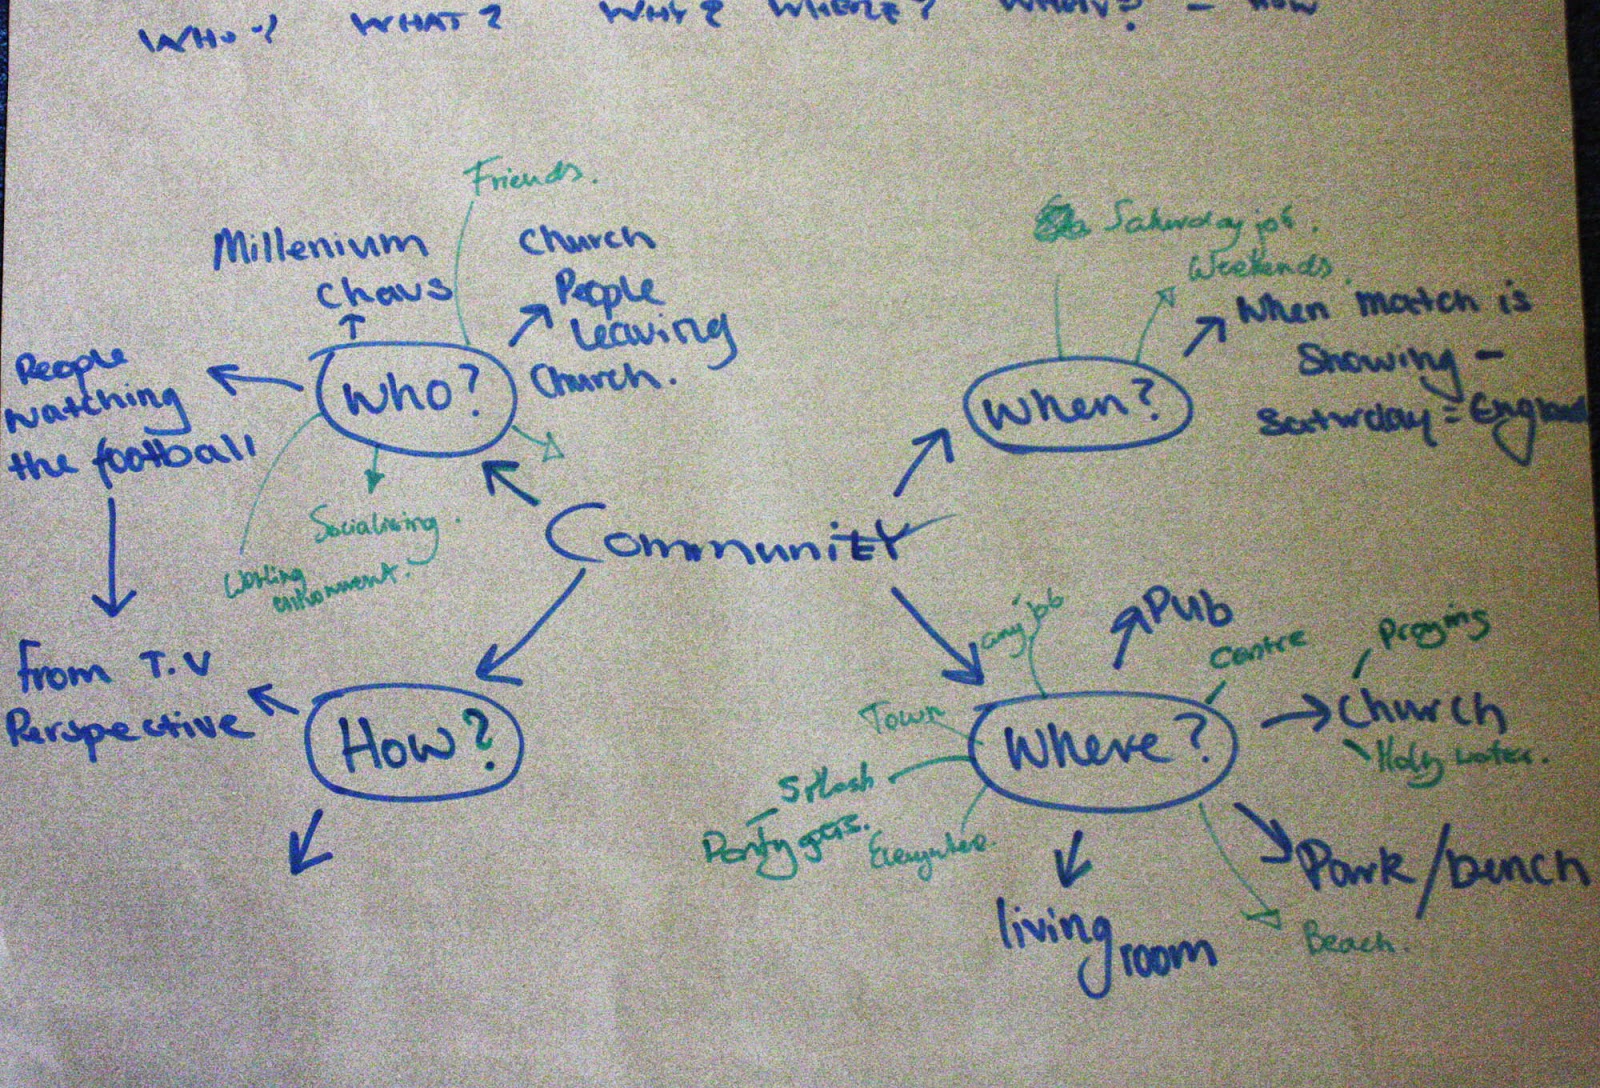 WHO? WHAT? WHY? WHERE? WHEN? - HOW
Friends.
Millenium
Chavs
Church
People
leaving
Church.
People
watching
the football
Who?
Socialising.
Working
environment.
from T.V
Perspective
Saturday job.
Weekends.
When match is
Showing -
Saturday = England
When?
Community
How?
any job
Pub
Centre
Town
Where?
Church
Holy water.
Splash
Party goers.
Everywhere.
living
room
Park / bench
Beach.